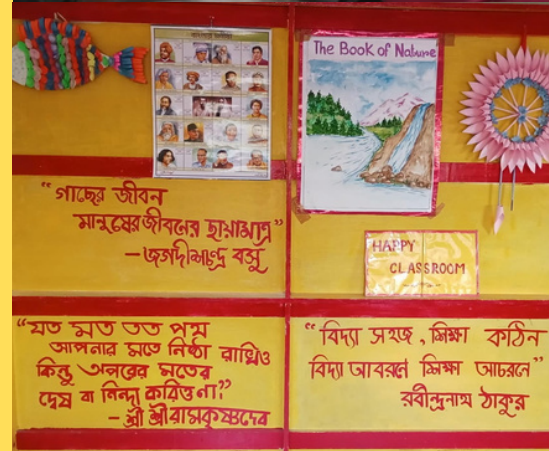 The Book of Nature
“গাছের জীবন
মানুষের জীবনের ছায়ামাত্র”
– জগদীশচন্দ্র বসু
HAPPY
CLASSROOM
“যত মত তত পথ
আপনার মতে নিষ্ঠা রাখিও
কিন্তু অপরের মতের
দ্বেষ বা নিন্দা করিও না।”
– শ্রী শ্রীরামকৃষ্ণদেব
“বিদ্যা সহজ, শিক্ষা কঠিন
বিদ্যা আবরণে শিক্ষা আচরনে”
রবীন্দ্রনাথ ঠাকুর